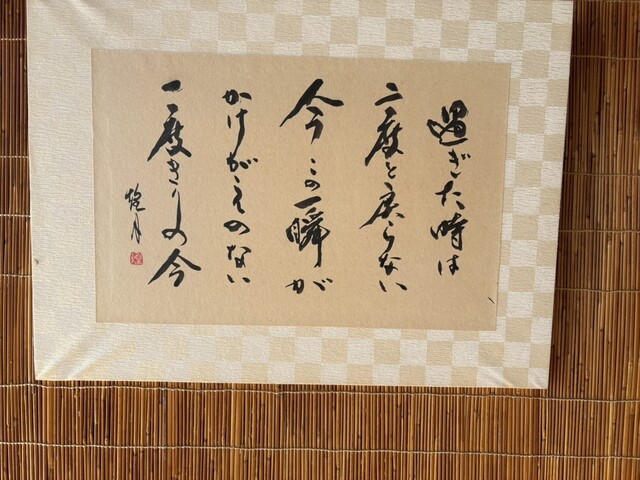 過ぎた時は
二度と戻らない
今この一瞬が
かけがえのない
一度きりの今